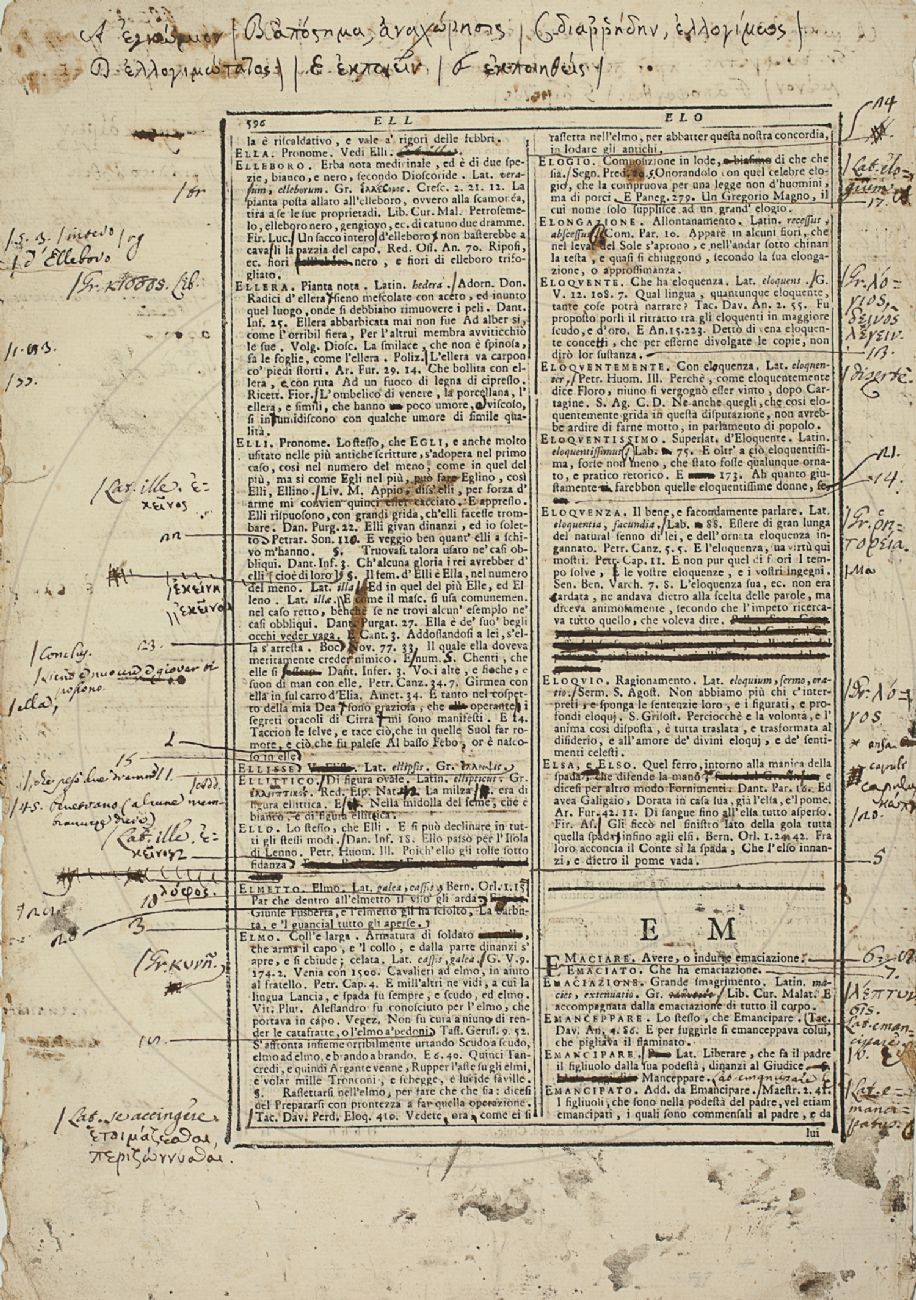 Α ἐγκώμιον | Β ἀπόστημα, ἀναχώρησις | C διαῤῥήδην, ἐλλογίμως |
D ἐλλογιμώτατος | E ἐκποιεῖν | ἐκποιηθεὶς |
596 ELL ELO
la è riscaldativo, e vale a' rigori delle febbri.
ELLA. Pronome. Vedi Elli.
ELLEBORO. Erba nota medicinale, ed è di due spe-
zie, bianco, e nero, secondo Dioscoride. Lat. vera-
trum, elleborum. Gr. ἑλλέβορος. Cresc. 2. 21. 12. La
pianta posta allato all'elleboro, ovvero alla scamonéa,
tira a se le sue proprietadi. Lib. Cur. Mal. Petrosemo-
lo, elleboro nero, gengiovo, ec. di catuno due dramme.
Fir. Luc. Un sacco intero d'elleboro non basterebbe a
cavarli la pazzia del capo. Red. Oss. An. 70. Riposi,
ec. fiori nero, e fiori di elleboro trifo-
gliato.
ELLERA. Pianta nota. Latin. hedera. Adorn. Don.
Radici d'ellera sieno mescolate con aceto, ed inunto
quel luogo, onde si debbiano rimuovere i peli. Dant.
Inf. 25. Ellera abbarbicata mai non fue Ad alber sì,
come l'orribil fiera, Per l'altrui membra avviticchiò
le sue. Volg. Diosc. La smilace, che non è spinosa,
fa le foglie, come l'ellera. Poliz. L'ellera va carpon
co' piedi storti. Ar. Fur. 29. 14. Che bollita con el-
lera, e con ruta Ad un fuoco di legna di cipresso.
Ricett. Fior. L'ombelico di venere, la porcellana, l'
ellera, e simili, che hanno poco umore, viscoso,
si inumidiscono con qualche umore di simile qua-
lità.
ELLI. Pronome. Lo stesso, che EGLI, e anche molto
usitato nelle più antiche scritture, s'adopera nel primo
caso, così nel numero del meno, come in quel del
più, ma sì come Egli nel più, può fare Eglino, così
Elli, Ellino. Liv. M. Appio, diss'elli, per forza d'
arme mi convien quinci esser cacciato. E appresso.
Elli rispuosono, con grandi grida, ch'elli facesse trom-
bare. Dan. Purg. 22. Elli givan dinanzi, ed io solet-
to Petrar. Son. 110. E veggio ben quant'elli a schi-
vo m'hanno. §. Truovasi talora usato ne' casi ob-
bliqui. Dant. Inf. 3. Ch'alcuna gloria i rei avrebber d'
elli cioè di loro §. Il fem. d'Elli è Ella, nel numero
del meno. Lat. illa. Ed in quel del più Elle, ed El-
leno. Lat. illæ. E come il masc. si usa comunemen.
nel caso retto, benchè se ne trovi alcun' esemplo ne'
casi obbliqui. Dant. Purgat. 27. Ella è de' suo' begli
occhi veder vaga. E Cant. 3. Addossandosi a lei, s'el-
la s'arresta. Boc. Nov. 77. 33. Il quale ella doveva
meritamente creder nimico. E num. 5. Chenti, che
elle si Dant. Infer. 3. Voci alte, e fioche, e
suon di man con elle. Petr. Canz. 34. 7. Girmen con
ella in sul carro d'Elia. Amet. 34. E tanto nel cospet-
to della mia Dea sono graziosa, che operante i
segreti oracoli di Cirra mi sono manifesti. E 14.
Taccion le selve, e tace ciò, che in quelle Suol far ro-
more, e ciò che fu palese Al basso Febo, or è nasco-
so in elle
ELLISSI. Lat. ellipsis. Gr. ἔλλειψις.
ELLITTICO. Di figura ovale. Latin. ellipticus. Gr.
ἐλλειπτικός. Red. Esp. Nat. La milza era di
figura ellittica. E Nella midolla del seme, che è
bianco, e di figura ellittica.
ELLO. Lo stesso, che Elli. E si può declinare in tut-
ti gli stessi modi. Dan. Inf. 18. Ello passò per l'Isola
di Lenno. Petr. Huom. Ill. Poich'ello gli tolse sotto
fidanza
ELMETTO. Elmo. Lat. galea, cassis. Bern. Orl. 1. 15
Par che dentro all'elmetto il viso gli arda.
Giunse Fusberta, e l'elmetto gli ha sciolto, La barbu-
ta, e 'l guancial tutto gli aperse.
ELMO. Coll'e larga. Armatura di soldato
che arma il capo, e 'l collo, e dalla parte dinanzi s'
apre, e si chiude; celata. Lat. cassis, galea. G. V. 9.
174. 2. Venia con 1500. Cavalieri ad elmo, in aiuto
al fratello. Petr. Cap. 4. E mill'altri ne vidi, a cui la
lingua Lancia, e spada fu sempre, e scudo, ed elmo.
Vit. Plut. Alessandro fu conosciuto per l'elmo, che
portava in capo. Vegez. Non su cura a niuno di ren-
der le catafratte, o l'elmo a' pedoni. Tass. Gerus. 9. 52.
S'affronta insieme orribilmente urtando Scudo a scudo,
elmo ad elmo, e brando a brando. E 6. 40. Quinci Tan-
credi, e quindi Argante venne, Rupper l'aste su gli elmi,
e volar mille Tronconi, e schegge, e lucide faville.
§. Rassettarsi nell'elmo, per fare che che sia: dicesi
del Prepararsi con prontezza a far quella operazione.
Tac. Dav. Perd. Eloq. 410. Vedete, ora, come ei si
rassetta nell'elmo, per abbatter questa nostra concordia,
in lodare gli antichi.
ELOGIO. Composizione in lode, o biasimo di che che
sia. Segn. Pred. Onorandolo con quel celebre elo-
gio, che la compruova per una legge non d'huomini,
ma di porci. E Paneg. 279. Un Gregorio Magno, il
cui nome solo supplisce ad un grand' elogio.
ELONGAZIONE. Allontanamento. Latin. recessus,
abscessus. Com. Par. 10. Appare in alcuni fiori, che
nel levar del Sole s'aprono, e nell'andar sotto chinan
la testa, e quasi si chiuggono, secondo la sua elonga-
zione, o approssimanza.
ELOQUENTE. Che ha eloquenza. Lat. eloquens. G.
V. 12. 108. 7. Qual lingua, quantunque eloquente,
tante cose potrà narrare? Tac. Dav. An. 2. 55. Fu
proposto porli il ritratto tra gli eloquenti in maggiore
scudo, e d'oro. E An. 15. 223. Dettò di vena eloquen-
te concetti, che per esserne divolgate le copie, non
dirò lor sustanza.
ELOQUENTEMENTE. Con eloquenza. Lat. eloquen-
ter. Petr. Huom. Ill. Perchè, come eloquentemente
dice Floro, niuno si vergognò esser vinto, dopo Car-
tagine. S. Ag. C. D. Ne anche quegli, che così elo-
quentemente grida in questa disputazione, non avreb-
be ardire di farne motto, in parlamento di popolo.
ELOQUENTISSIMO. Superlat. d'Eloquente. Latin.
eloquentissimus. Lab. 75. E oltr' a ciò eloquentissi-
ma, forse non meno, che stato fosse qualunque orna-
to, e pratico retorico. E 173. Ah quanto giu-
stamente sarebbon quelle eloquentissime donne, se
ELOQUENZA. Il bene, e facondamente parlare. Lat.
eloquentia, facundia. Lab. 88. Essere di gran lunga
del natural senno di lei, e dell'ornata eloquenza in-
gannato. Petr. Canz. 5. 5. E l'eloquenza, sua virtù qui
mostri. Petr. Cap. 11. E non pur quel di fuori l tem-
po solve, E le vostre eloquenze, e i vostri ingegni.
Sen. Ben. Varch. 7. 8. L'eloquenza sua, ec. non era
cardata, ne andava dietro alla scelta delle parole, ma
diceva animosamente, secondo che l'impeto ricerca-
va tutto quello, che voleva dire.
ELOQUIO. Ragionamento. Lat. eloquium, sermo, ora-
tio. Serm. S. Agost. Non abbiamo più chi c'inter-
preti, e sponga le sentenzie loro, e i figurati, e pro-
fondi eloquj. S. Grisost. Perciocchè e la volontà, e l'
anima così disposta, è tutta traslata, e trasformata al
disiderio, e all'amore de' divini eloquj, e de' senti-
menti celesti.
ELSA, e ELSO. Quel ferro, intorno alla manica della
spada, che difende la mano
dicesi per altro modo Fornimenti. Dant. Par. 16. Ed
avea Galigaio, Dorata in casa sua, già l'elsa, e 'l pome.
Ar. Fur. 42. 11. Di sangue fino all'elsa tutto asperso.
Fir. As. Gli ficcò nel sinistro lato della gola tutta
quella spada infino agli elsi. Bern. Orl. 1. 2. 42. Fra
loro acconcia il Conte sì la spada, Che l'elso innan-
zi, e dietro il pome vada.
E M
EMACIARE. Avere, o indurre emaciazione.
EMACIATO. Che ha emaciazione.
EMACIAZIONE. Grande smagrimento. Latin. ma-
cies, extenuatio. Gr. Lib. Cur. Malat. E
accompagnata dalla emaciazione di tutto il corpo.
EMANCEPPARE. Lo stesso, che Emancipare. Tac.
Dav. An. 4. 86. E per fuggirle si emanceppava colui,
che pigliava il flaminato.
EMANCIPARE. Lat. Liberare, che fa il padre
il figliuolo dalla sua podestà, dinanzi al Giudice.
Manceppare. Lat. emancipare
EMANCIPATO. Add. da Emancipare. Maestr. 2. 41.
I figliuoli, che sono nella podestà del padre, vel etiam
emancipati, i quali sono commensali al padre, e da
lui
d'Elleboro
Gr. κισσός.
Lat. ille. ἐ-
κεῖνος
ἐκείνη
ἐκεῖνοι
23.
ella,
2
15
Lat. ille, ἐ-
κεῖνος
λόφος.
18
20
3
Lat. se accingere
ἑτοιμάζεσθαι,
περιζώννυσθαι.
14
Lat. elo-
gium.
17.
Gr. λό-
γιος.
δεινὸς
λέγειν.
13.
diserte.
21.
14.
Gr. ῥη-
τορεία.
Gr. λό-
γος.
5
6
7.
λεπτυ
Lat. eman-
cipare
Lat. e-
manci-
patus.